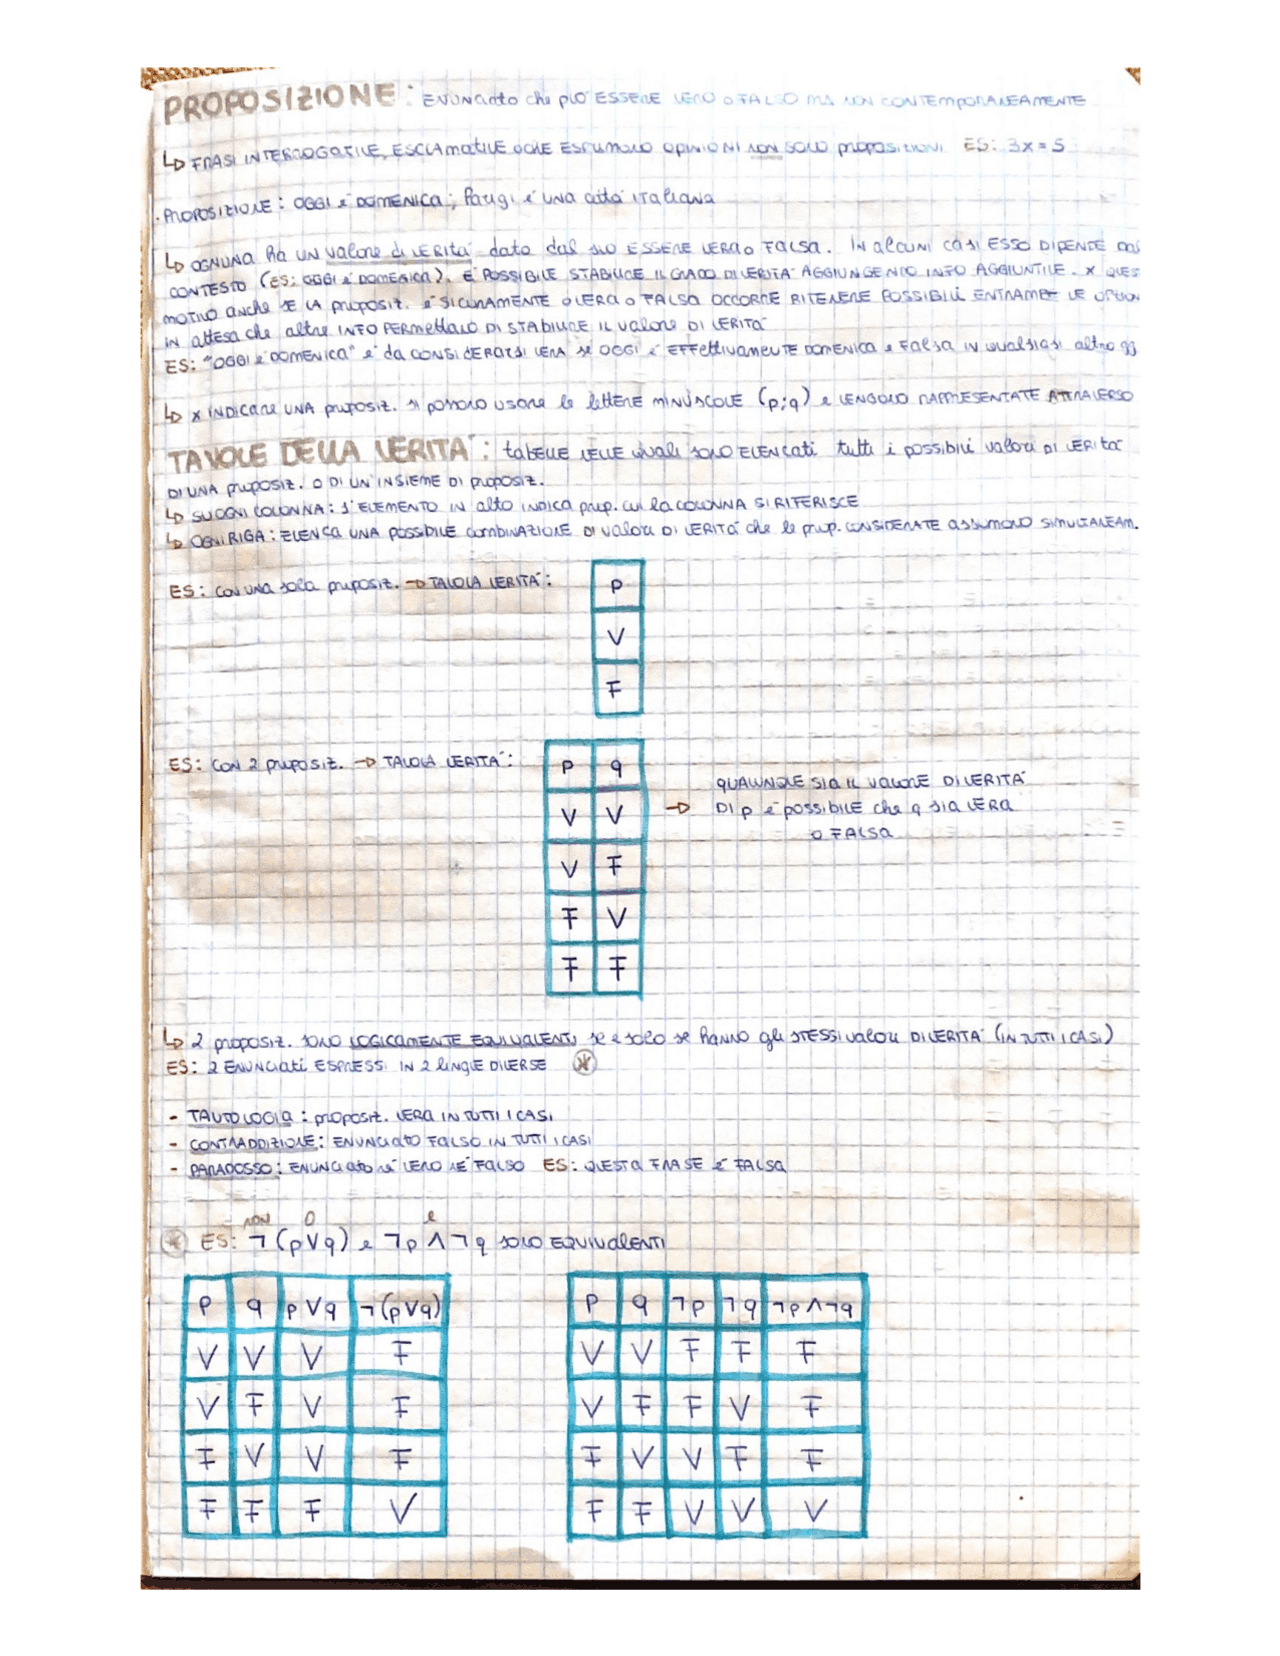 PROPOSIZIONE: ENUNCIATO che può ESSERE VERO o FALSO MA NON CONTEMPORANEAMENTE
↳ FRASI INTERROGATIVE, ESCLAMATIVE O CHE ESPRIMONO OPINIONI NON SONO proposizioni ES: 3x = 5
. PROPOSIZIONE: OGGI è DOMENICA; Parigi è UNA città ITALIANA
↳ OGNUNA ha UN valore di VERITÀ dato dal suo ESSERE VERA o FALSA. IN alcuni casi ESSO DIPENDE dal
CONTESTO (ES: OGGI è DOMENICA). È POSSIBILE STABILIRE IL GRADO DI VERITÀ AGGIUNGENDO INFO AGGIUNTIVE. x QUES
MOTIVO anche SE LA proposit. è SICURAMENTE o VERA o FALSA OCCORRE RITENERE POSSIBILI ENTRAMBE LE OPZION
IN attesa che altre INFO PERMettano DI STABILIRE IL valore DI VERITÀ
ES: "OGGI è DOMENICA" è da CONSIDERARSI VERA se OGGI è EFFettivamente DOMENICA e FALSA IN qualsiasi altro gg
↳ x INDICARE UNA proposiz. si possono usare le lettere MINUSCOLE (p;q) e VENGONO RAPPRESENTATE ATTRAVERSO
TAVOLE DELLA VERITÀ: tabelle NELLE quali SONO ELENCATI tutti i possibili valori DI VERITÀ
DI UNA proposiz. O DI UN'INSIEME DI proposiz.
↳ SU OGNI COLONNA: 1° ELEMENTO IN alto INDICA prop. cui la COLONNA SI RIFERISCE
↳ OGNI RIGA: ELENCA UNA POSSIBILE combinazione DI valori DI VERITÀ che le prop. CONSIDERATE assumono SIMULTANEAM.
ES: CON UNA sola proposiz. → TAVOLA VERITÀ:
p
V
F
ES: CON 2 proposiz. → TAVOLA VERITÀ:
p q
V V
V F
F V
F F
→ QUALUNQUE SIA IL VALORE DI VERITÀ
DI p è POSSIBILE che q sia VERA
O FALSA
↳ 2 proposiz. SONO LOGICAMENTE EQUIVALENTI se e solo se hanno gli STESSI valori DI VERITÀ (IN TUTTI I CASI)
ES: 2 ENUNCIATI ESPRESSI IN 2 LINGUE DIVERSE *
- TAUTOLOGIA: proposiz. VERA IN TUTTI I CASI
- CONTRADDIZIONE: ENUNCIATO FALSO IN TUTTI I CASI
- PARADOSSO: ENUNCIATO né VERO NÉ FALSO ES: QUESTA FRASE è FALSA
NON O e
* ES: ¬(p∨q) e ¬p∧¬q SONO EQUIVALENTI
p q p∨q ¬(p∨q)
V V V F
V F V F
F V V F
F F F V
p q ¬p ¬q ¬p∧¬q
V V F F F
V F F V F
F V V F F
F F V V V